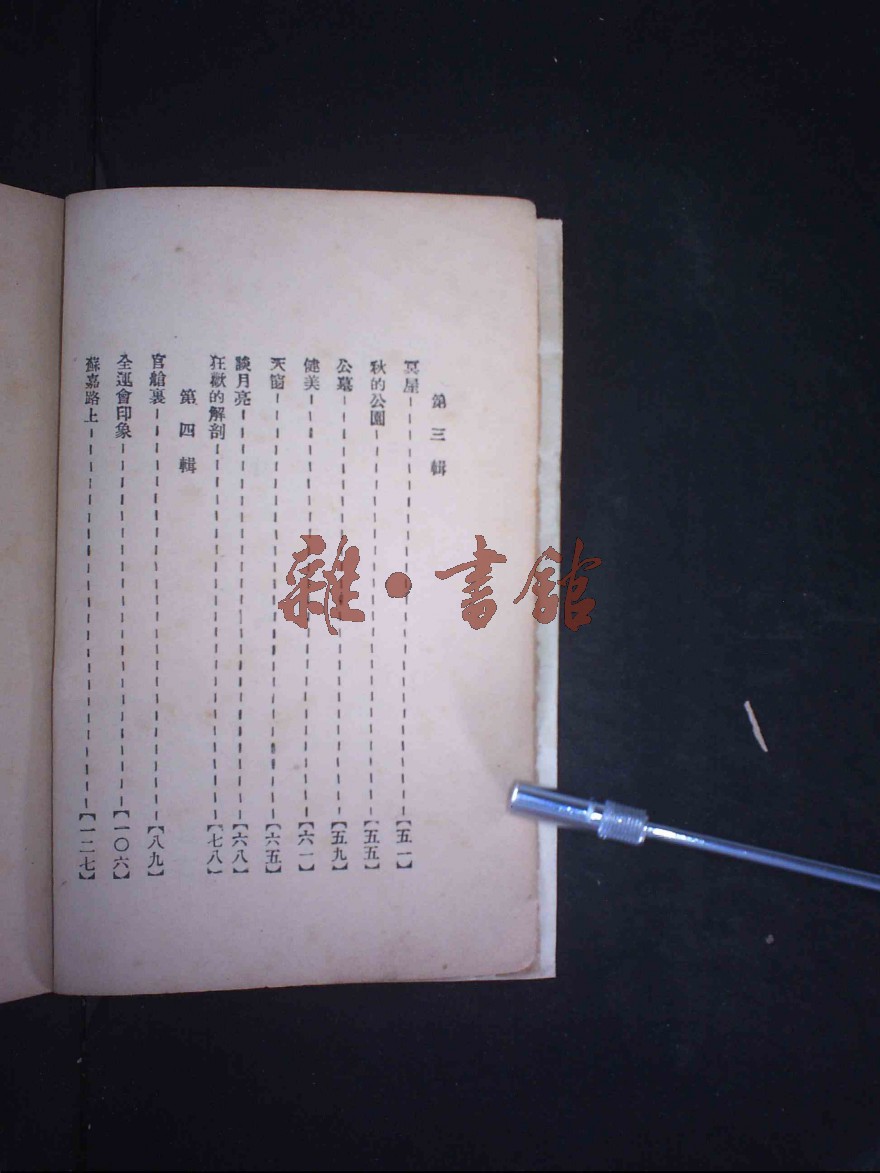 第三輯
冥屋【五一】
秋的公園【五五】
公墓【五九】
健美【六一】
天窗【六五】
談月亮【六八】
狂歡的解剖【七八】
第四輯
官艙裏【八九】
全運會印象【一〇六】
蘇嘉路上【一二七】
雜·書館